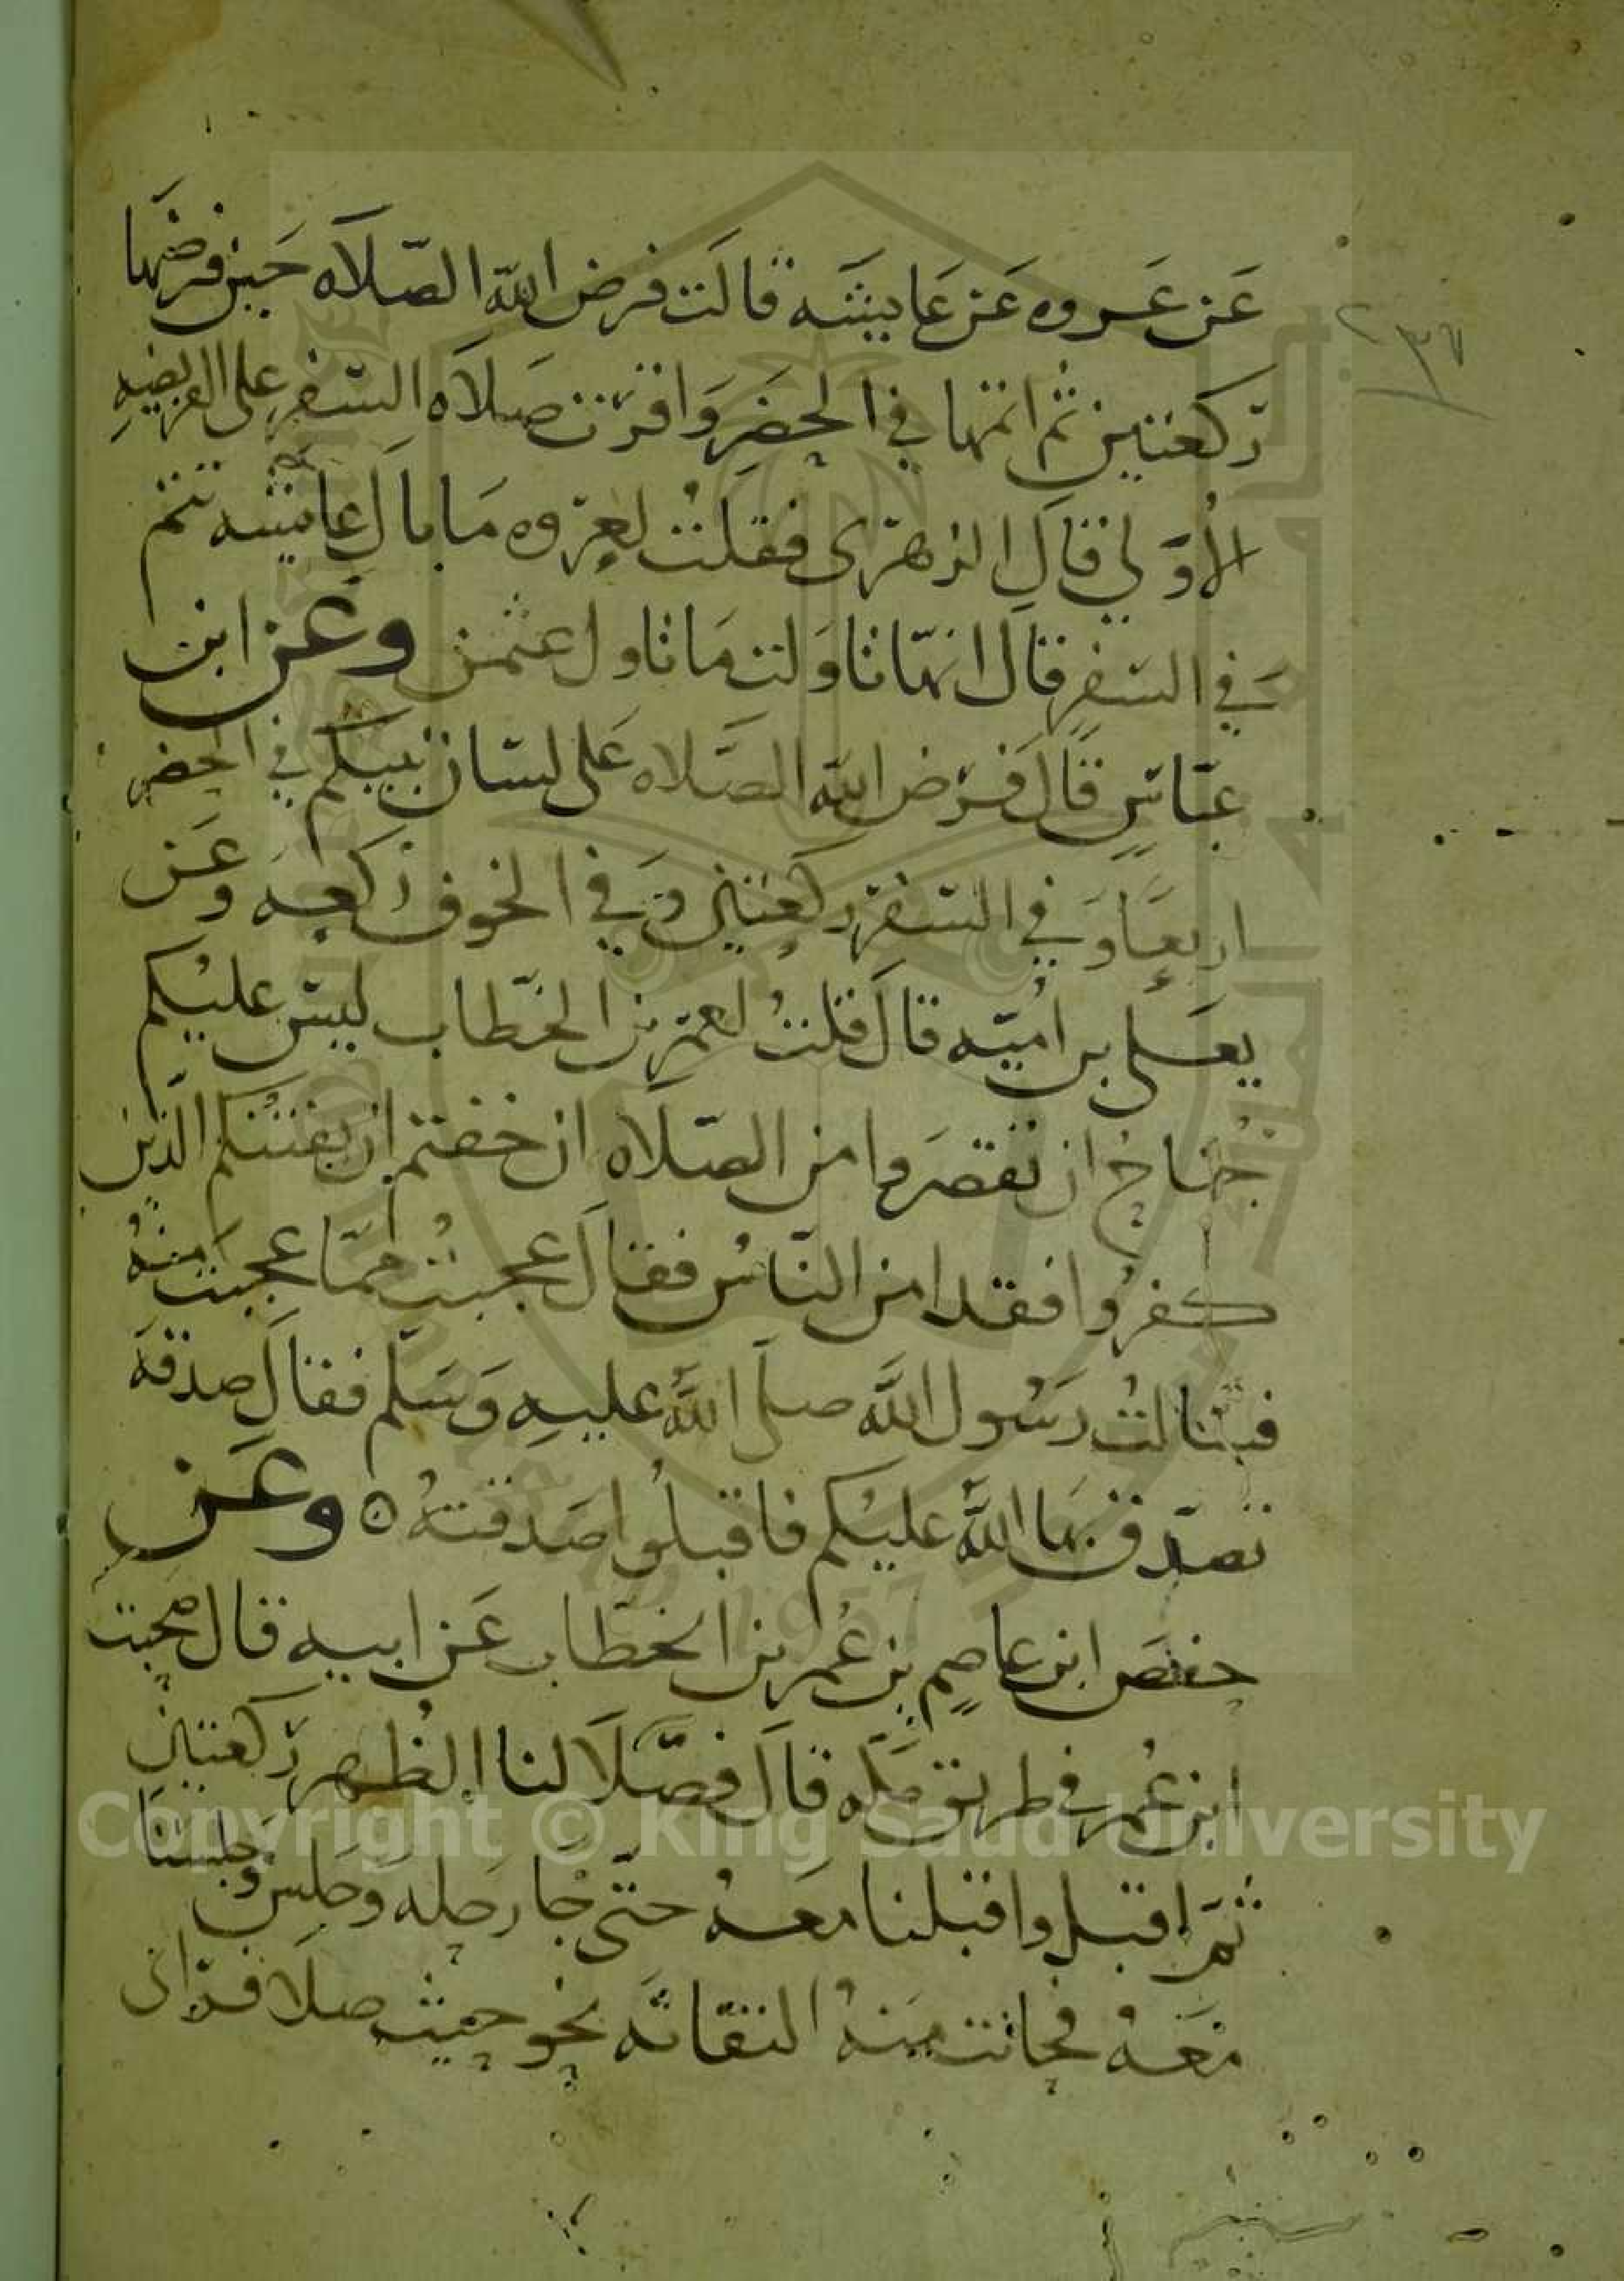 عن عروه عن عايشه قالت فرض الله الصلاه حين فرضها
ركعتين ثم اتمها في الحضر واقرت صلاه السفر على الفريضه
الأولي قال الزهرى فقلت لعروه ما بال عايشه تتم
في السفر قال انها تاولت ما تاول عثمن وعن ابن
عباس قال فرض الله الصلاه على لسان نبيكم في الحضر
اربعا وفي السفر ركعتين وفي الخوف ركعه وعن
يعلى بن اميه قال قلت لعمر بن الخطاب ليس عليكم
جناح ان تقصروا من الصلاه ان خفتم ان يفتنكم الذين
كفروا فقد امن الناس فقال عجبت مما عجبت منه
فسالت رسول الله صلى الله عليه وسلم فقال صدقة
تصدق بها الله عليكم فاقبلوا صدقته ٥ وعن
حفص ابن عاصم بن عمر بن الخطاب عن ابيه قال صحبت
ابن عمر في طريق مكه قال فصلا لنا الظهر ركعتين
ثم اقبل واقبلنا معه حتى جا رحله وجلس وجلسنا
معه فحانت منه التفاته نحو حيث صلا فراى
٢٣٦
Copyright © King Saud University
1957